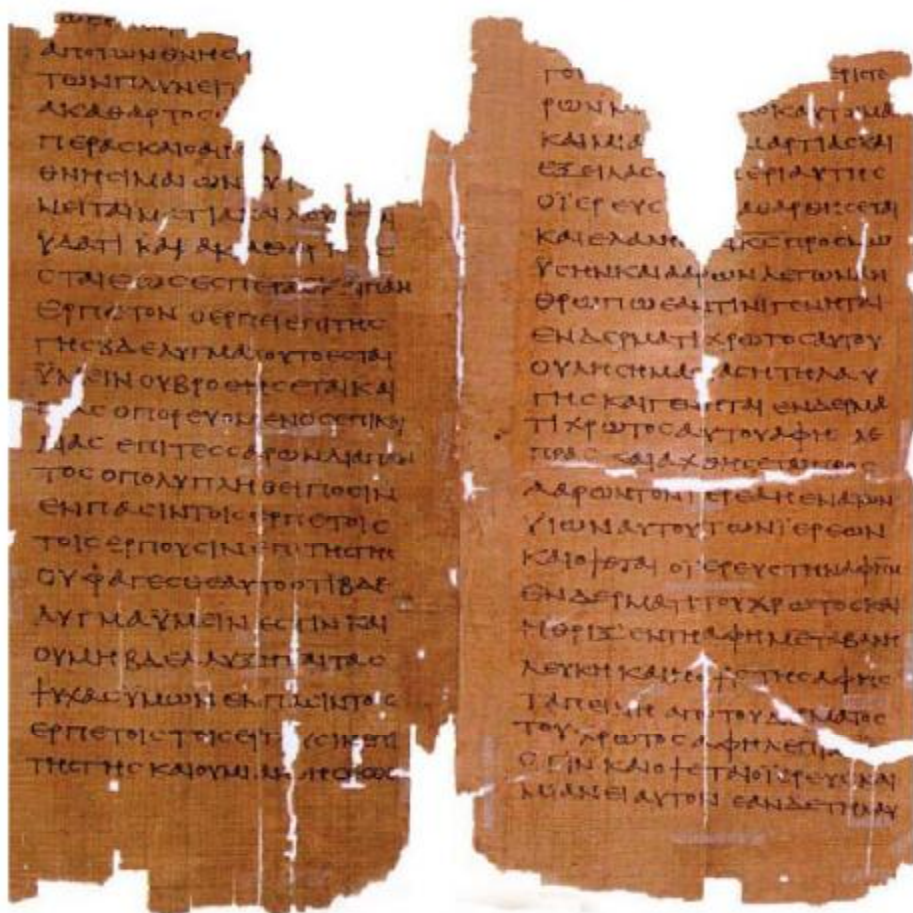 ΑΠΟΤΩΝΘΝΗϹΙ
ΤΩΝΠΛΥΝΕΙΤ
ΑΚΑΘΑΡΤΟϹ
ΠΕΡΑϹΚΑΙΟΑΙΡΩ
ΘΝΗϹΙΜΑΙΩΝ
ΥΔΑΤΙΚΑΙΑΚΑΘΑΡΤΟϹΕ
ϹΤΑΙΕΩϹΕϹΠΕΡΑϹΚΑΙΠΑΝ
ΕΡΠΕΤΟΝΟΕΡΠΕΙΕΠΙΤΗϹ
ΓΗϹΒΔΕΛΥΓΜΑΤΟΥΤΟΕϹΤΑΙ
ΫΜΕΙΝΟΥΒΡΩΘΗϹΕΤΑΙΚΑΙ
ΠΑϹΟΠΟΡΕΥΟΜΕΝΟϹΕΠΙΚΟΙ
ΛΙΑϹΕΠΙΤΕϹϹΑΡΩΝΔΙΑΠΑΝ
ΤΟϹΟΠΟΛΥΠΛΗΘΕΙΠΟϹΙΝ
ΕΝΠΑϹΙΝΤΟΙϹΕΡΠΕΤΟΙϹ
ΤΟΙϹΕΡΠΟΥϹΙΝΕΠΙΤΗϹΓΗϹ
ΟΥΦΑΓΕϹΘΕΑΥΤΟΟΤΙΒΔΕ
ΛΥΓΜΑΫΜΕΙΝΕϹΤΙΝΚΑΙ
ΟΥΜΗΒΔΕΛΛΥΞΗΤΑΙΤΑϹ
ΨΥΧΑϹΫΜΩΝΕΝΠΑϹΙΝΤΟΙϹ
ΕΡΠΕΤΟΙϹΤΟΙϹΕΡΠΟΥϹΙΝΕΠΙ
ΤΗϹΓΗϹΚΑΙΟΥΜΙΑΝΘΗϹΕϹΘΕ
ΓΟΥ ΕΡΙϹΤΕ
ΡΩΝΜ ΚΑΥΤΩΜΑ
ΚΑΙΜΙΑ ΜΑΡΤΙΑϹΚΑΙ
ΕΞΕΙΛΑϹ ΠΕΡΙΑΥΤΗϹ
ΟΪΕΡΕΥϹ ΚΑΘΑΡΘΗϹΕΤΑΙ
ΚΑΙΕΛΑΛΗ Κ̅Ϲ̅ΠΡΟϹΜΩ
ΫϹΗΝΚΑΙΑΑΡΩΝΛΕΓΩΝΑΝ
ΘΡΩΠΩΕΑΝΤΙΝΙΓΕΝΗΤΑΙ
ΕΝΔΕΡΜΑΤΙΧΡΩΤΟϹΑΥΤΟΥ
ΟΥΛΗϹΗΜΑϹΙΑϹΗΤΗΛΑΥ
ΓΗϹΚΑΙΓΕΝΗΤΑΙΕΝΔΕΡΜΑ
ΤΙΧΡΩΤΟϹΑΥΤΟΥΑΦΗΛΕ
ΠΡΑϹΚΑΙΑΧΘΗϹΕΤΑΙΠΡΟϹ
ΑΑΡΩΝΤΟΝΪΕΡΕΑΗΕΝΑΤΩΝ
ΫΙΩΝΑΥΤΟΥΤΩΝΪΕΡΕΩΝ
ΚΑΙΟΨΕΤΑΙΟΪΕΡΕΥϹΤΗΝΑΦΗΝ
ΕΝΔΕΡΜΑΤΙΤΟΥΧΡΩΤΟϹΚΑΙ
ΗΘΡΙΞΕΝΤΗΑΦΗΜΕΤΑΒΑΛΗ
ΛΕΥΚΗΚΑΙΗΟΨΙϹΤΗϹΑΦΗϹ
ΤΑΠΕΙΝΗΑΠΟΤΟΥΔΕΡΜΑΤΟϹ
ΤΟΥΧΡΩΤΟϹΑΦΗΛΕΠΡΑϹ
ΕϹΤΙΝΚΑΙΟΨΕΤΑΙΟΪΕΡΕΥϹΚΑΙ
ΜΙΑΝΕΙΑΥΤΟΝΕΑΝΔΕΤΗΛΑΥ